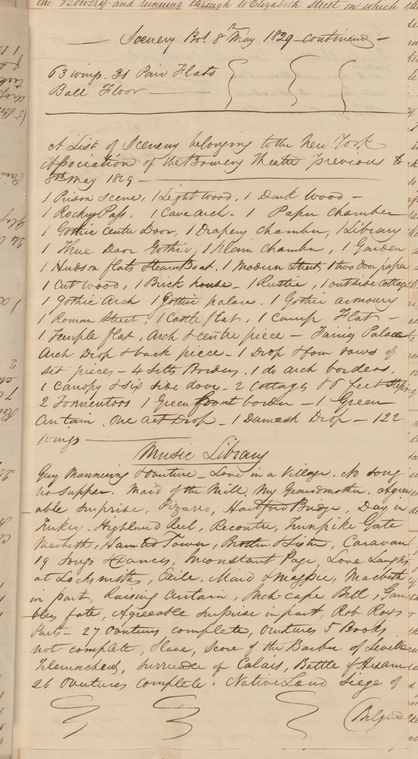 the Bowery and running through to Elizabeth Street on which the
Scenery Bot. 8th May 1829 continued
63 wing. 31 Pair Flats
Ball Floor
A List of Scenery belonging to the New York
Association of the Bowery Theatre previous to
8th May 1829
1 Prison Scene, 1 Light wood. 1 Dark wood
1 Rocky Pass, 1 Cave arch - 1 Paper chamber
1 Gothic Centre Door, 1 Drapery chamber, 1 Library
1 Three Door Gothic, 1 Plain chamber, 1 Garden
1 Hudson flats Steam Boat. 1 Modern Street, 1 two door paper
1 Cut wood, 1 Brick house - 1 Rustic, 1 outside cottage
1 Gothic Arch 1 Gothic palace. 1 Gothic armoury
1 Roman Street. 1 Castle flat, 1 Camp Flat -
1 Temple flat, Arch & centre piece - Fairy Palace
Arch Drop & back piece - 1 Drop & four rows of
set pieces - 4 Sets Borders. 1 do arch borders,
1 Canopy & six side doors - 2 Cottages
2 Tormentors 1 Green front border - 1 Green
Curtain, one act Drop - 1 Damask Drop - 122
wings
Music Library
Guy Mannering & Overture - Love in a Village. No Song
no Supper. Maid of the Mill. My Grandmother. Agree-
able Surprise, Pizarro, Hartford Bridge, Day in
Turkey. Highland Reel, Recontre, Turnpike Gate
Macbeth, Haunted Tower, Brother & Sister, Caravan
19 Songs & Dances, Inconstant Page, Love Laughs
at Locksmiths, Exile. Maid & Magpie, Macbeth
in part, Raising Curtain, Inch cape Bell,
Agreeable Surprise in part, Rob Roys
Parts - 27 Overtures complete, Overtures 5 Books
not complete, Slave, Score of the Barber of Seville
Telemachus, Surrender of Calais, Battle of Hexam
26 Overtures complete. Native Land Siege of
Belgrade